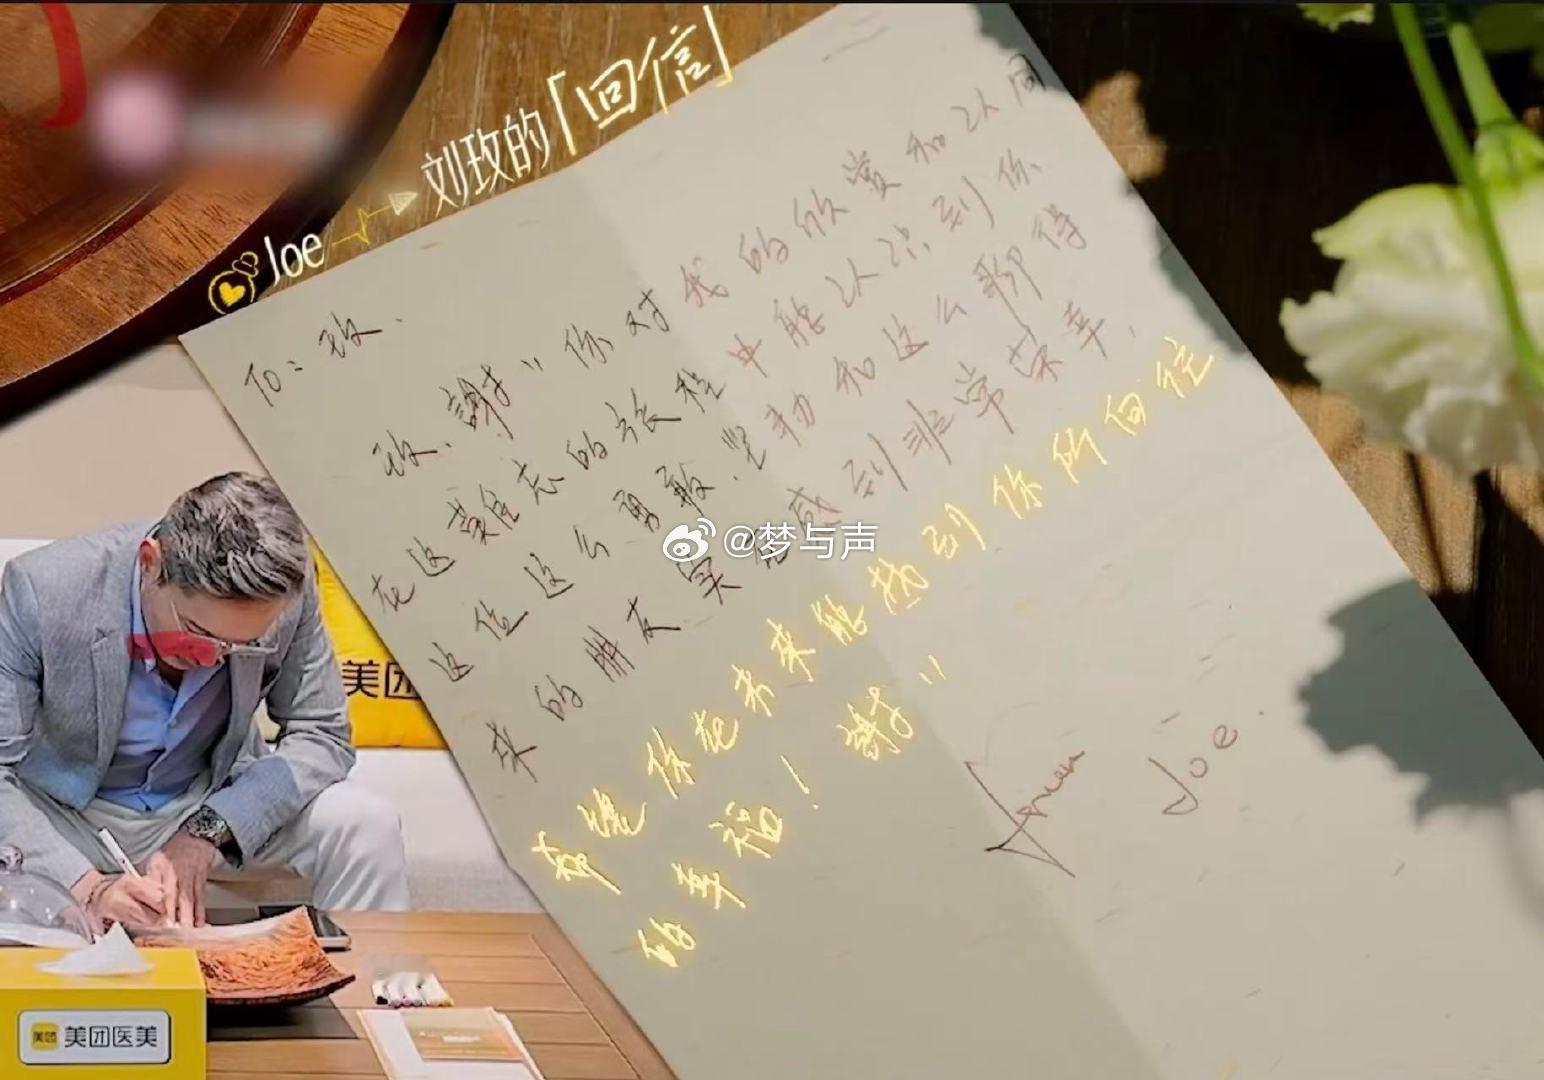 Joe
刘玫的「回信」
To: 玫.
玫、謝〃你对我的欣赏和认同
在这難忘的旅程中能认识到你
这位这么勇敢.坚韧和这么聊得
来的朋友.实在感到非常荣幸,
希望你在未来能找到你所向往
的幸福! 謝〃
Joe.
@梦与声
美团
美团 美团医美